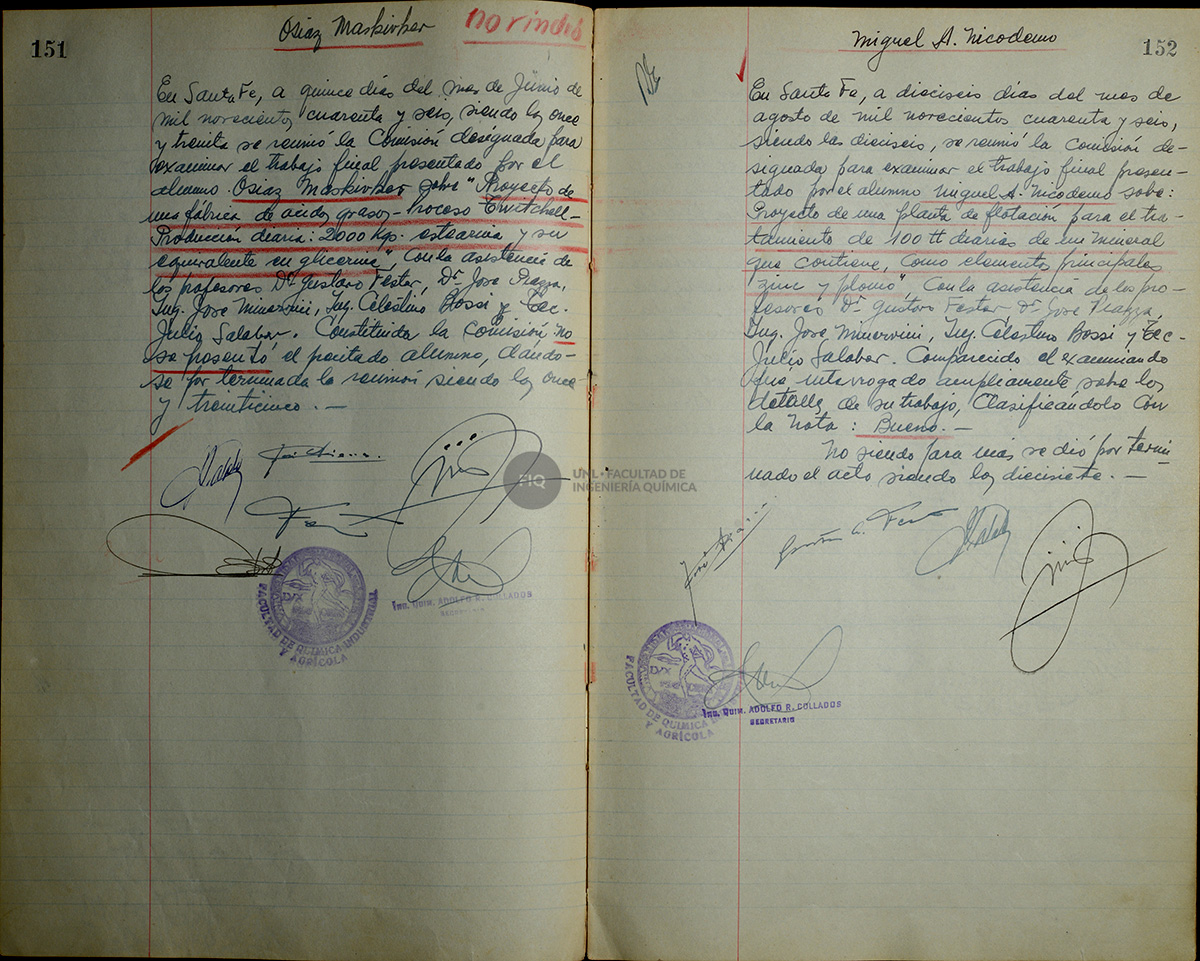 151
Osiaz Maskivker
no rindió
En Santa Fe, a quince días del mes de Junio de
mil novecientos cuarenta y seis, siendo las once
y treinta se reunió la Comisión designada para
examinar el trabajo final presentado por el
alumno Osiaz Maskivker sobre "Proyecto de
una fábrica de ácidos grasos - Proceso Twitchell -
Producción diaria: 2000 Kgs. estearina y su
equivalente en glicerina" Con la asistencia de
los profesores Dr. Gustavo Fester, Dr. José Piazza,
Ing. José Minervini, Ing. Celestino Bossi y Tec.
Julio Salaber. Constituida la Comisión, no
se presentó el precitado alumno, dándo-
se por terminada la reunión siendo las once
y treinticinco. —
FACULTAD DE QUIMICA INDUSTRIAL
Y AGRÍCOLA
ING. QUIM. ADOLFO R. COLLADOS
SECRETARIO
FIQ
UNL • FACULTAD DE
INGENIERÍA QUÍMICA
152
Miguel A. Nicodemo
En Santa Fe, a dieciseis días del mes de
agosto de mil novecientos cuarenta y seis,
siendo las dieciseis, se reunió la comisión de-
signada para examinar el trabajo final presen-
tado por el alumno Miguel A. Nicodemo sobre:
Proyecto de una planta de flotación para el tra-
tamiento de 100 tt diarias de un mineral
que contiene, como elementos principales
zinc y plomo" Con la asistencia de los pro-
fesores Dr. Gustavo Fester Dr. José Piazza,
Ing. José Minervini, Ing. Celestino Bossi y Tec-
Julio Salaber. Comparecido el examinando
fué interrogado ampliamente sobre los
detalles de su trabajo, Clasificándolo con
la nota: Bueno. —
No siendo para más se dió por termi-
nado el acto siendo las diecisiete. —
FACULTAD DE QUIMICA
Y AGRÍCOLA
ING. QUIM. ADOLFO R. COLLADOS
SECRETARIO